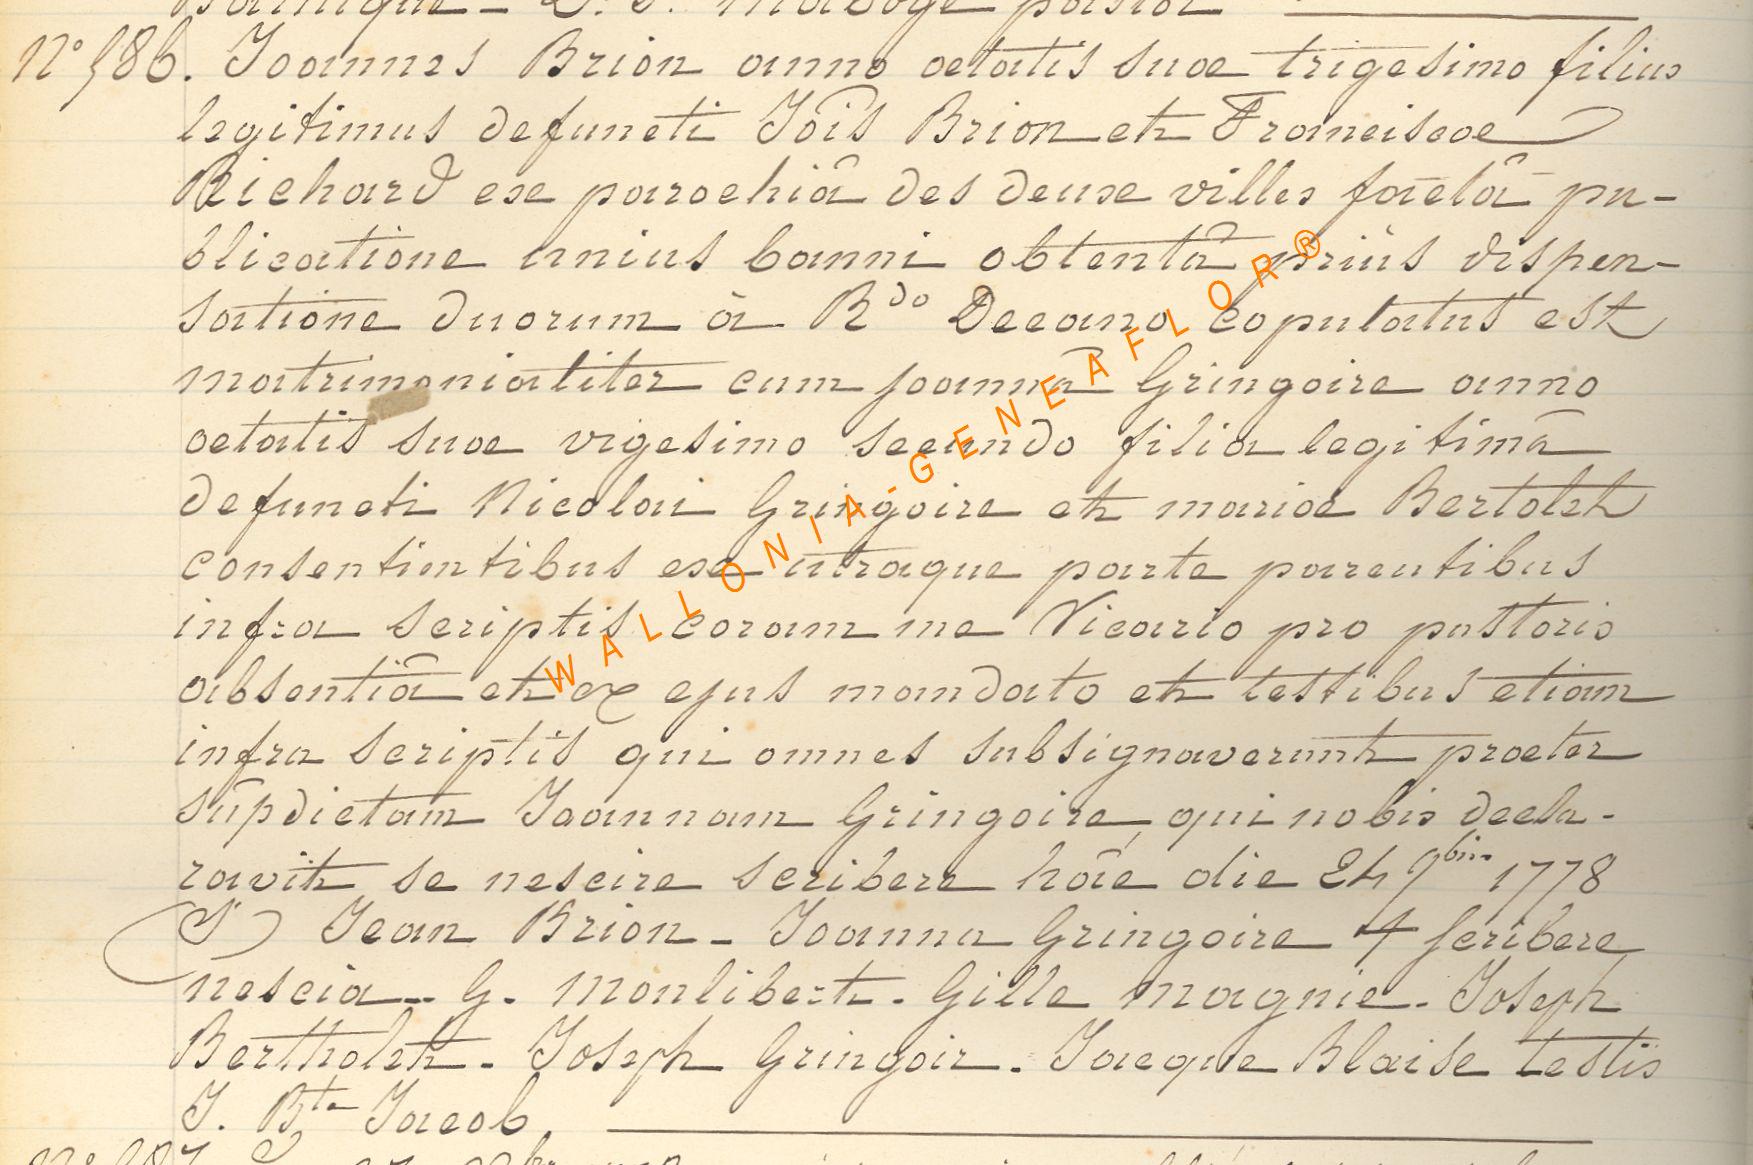 N° 586. Joannes Brion anno aetatis suae trigesimo filius
legitimus defuncti Jôis Brion et Franciscae
Richard ex parochiâ des deux villes factâ pu-
blicatione unius banni obtentâ priùs dispen-
satione duorum à Rdo Decano copulatus est
matrimonialiter cum joannâ Gringoire anno
aetatis suae vigesimo secundo filia legitimâ
defuncti Nicolai Gringoire et mariae Bertolet
consentientibus ex utraque parte parentibus
infra scriptis coram me Vicario pro pastoris
absentiâ et ex ejus mandato et testibus etiam
infra scriptis qui omnes subsignaverunt praeter
sûpdictam Joannam Gringoire, qui nobis decla-
ravit se nescire scribere hâc die 24 9bris 1778
S Jean Brion - Joanna Gringoire + scribere
nescia - G. Monlibert - Gille Magnie - Joseph
Bertholet - Joseph Gringoir - Jacque Blaise testis
J. Bte Jacob
WALLONIA-GENEAFLOR®